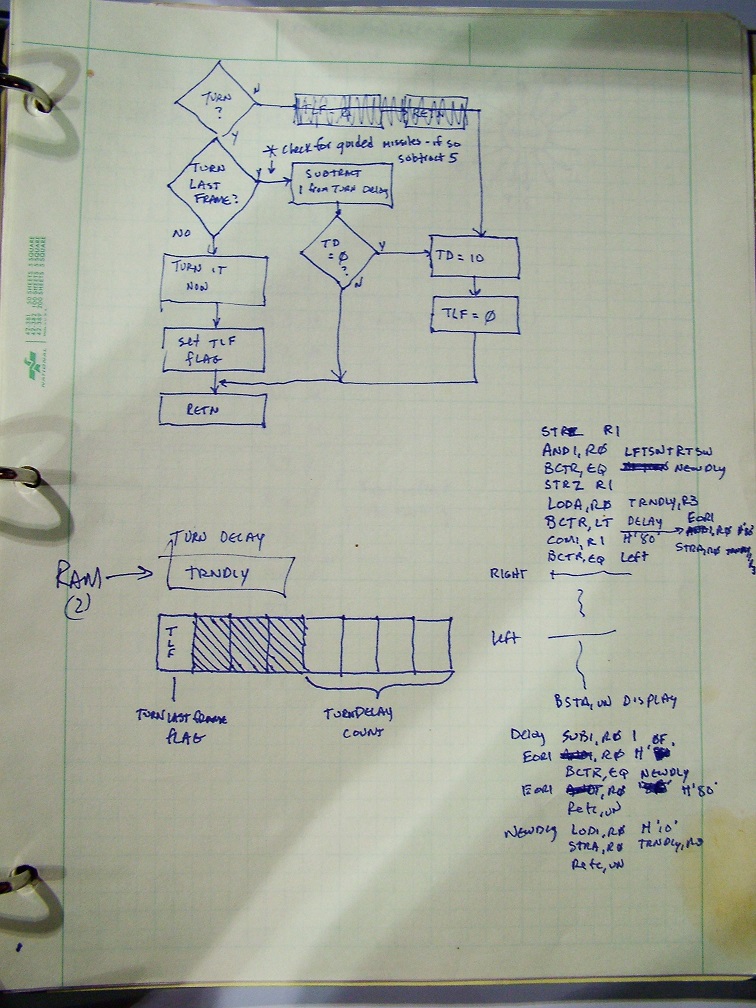 TURN
?
N
Y
* Check for guided missiles - if so
subtract 5
TURN
LAST
FRAME?
Y
SUBTRACT
1 from TURN DELAY
NO
TD
= Ø
?
Y
N
TD = 10
TURN IT
NOW
TLF = Ø
set TLF
FLAG
RETN
NATIONAL
STRZ R1
ANDI, RØ LFTSW+RTSW
BCTR, EQ NEWDLY
STRZ R1
LODA, RØ TRNDLY, R3
BCTR, LT DELAY
EORI
COMI, R1 H'80'
BCTR, EQ LEFT
STRA, RØ
RIGHT
Left
BSTA, UN DISPLAY
TURN DELAY
RAM
(2)
TRNDLY
TLF
TURN LAST FRAME
FLAG
TURN DELAY
COUNT
Delay SUBI, RØ 1
EORI, RØ H'
BCTR, EQ NEWDLY
EORI, RØ H'80'
Retc, UN
NEWDLY LODI, RØ H'10'
STRA, RØ TRNDLY, R3
Retc, UN